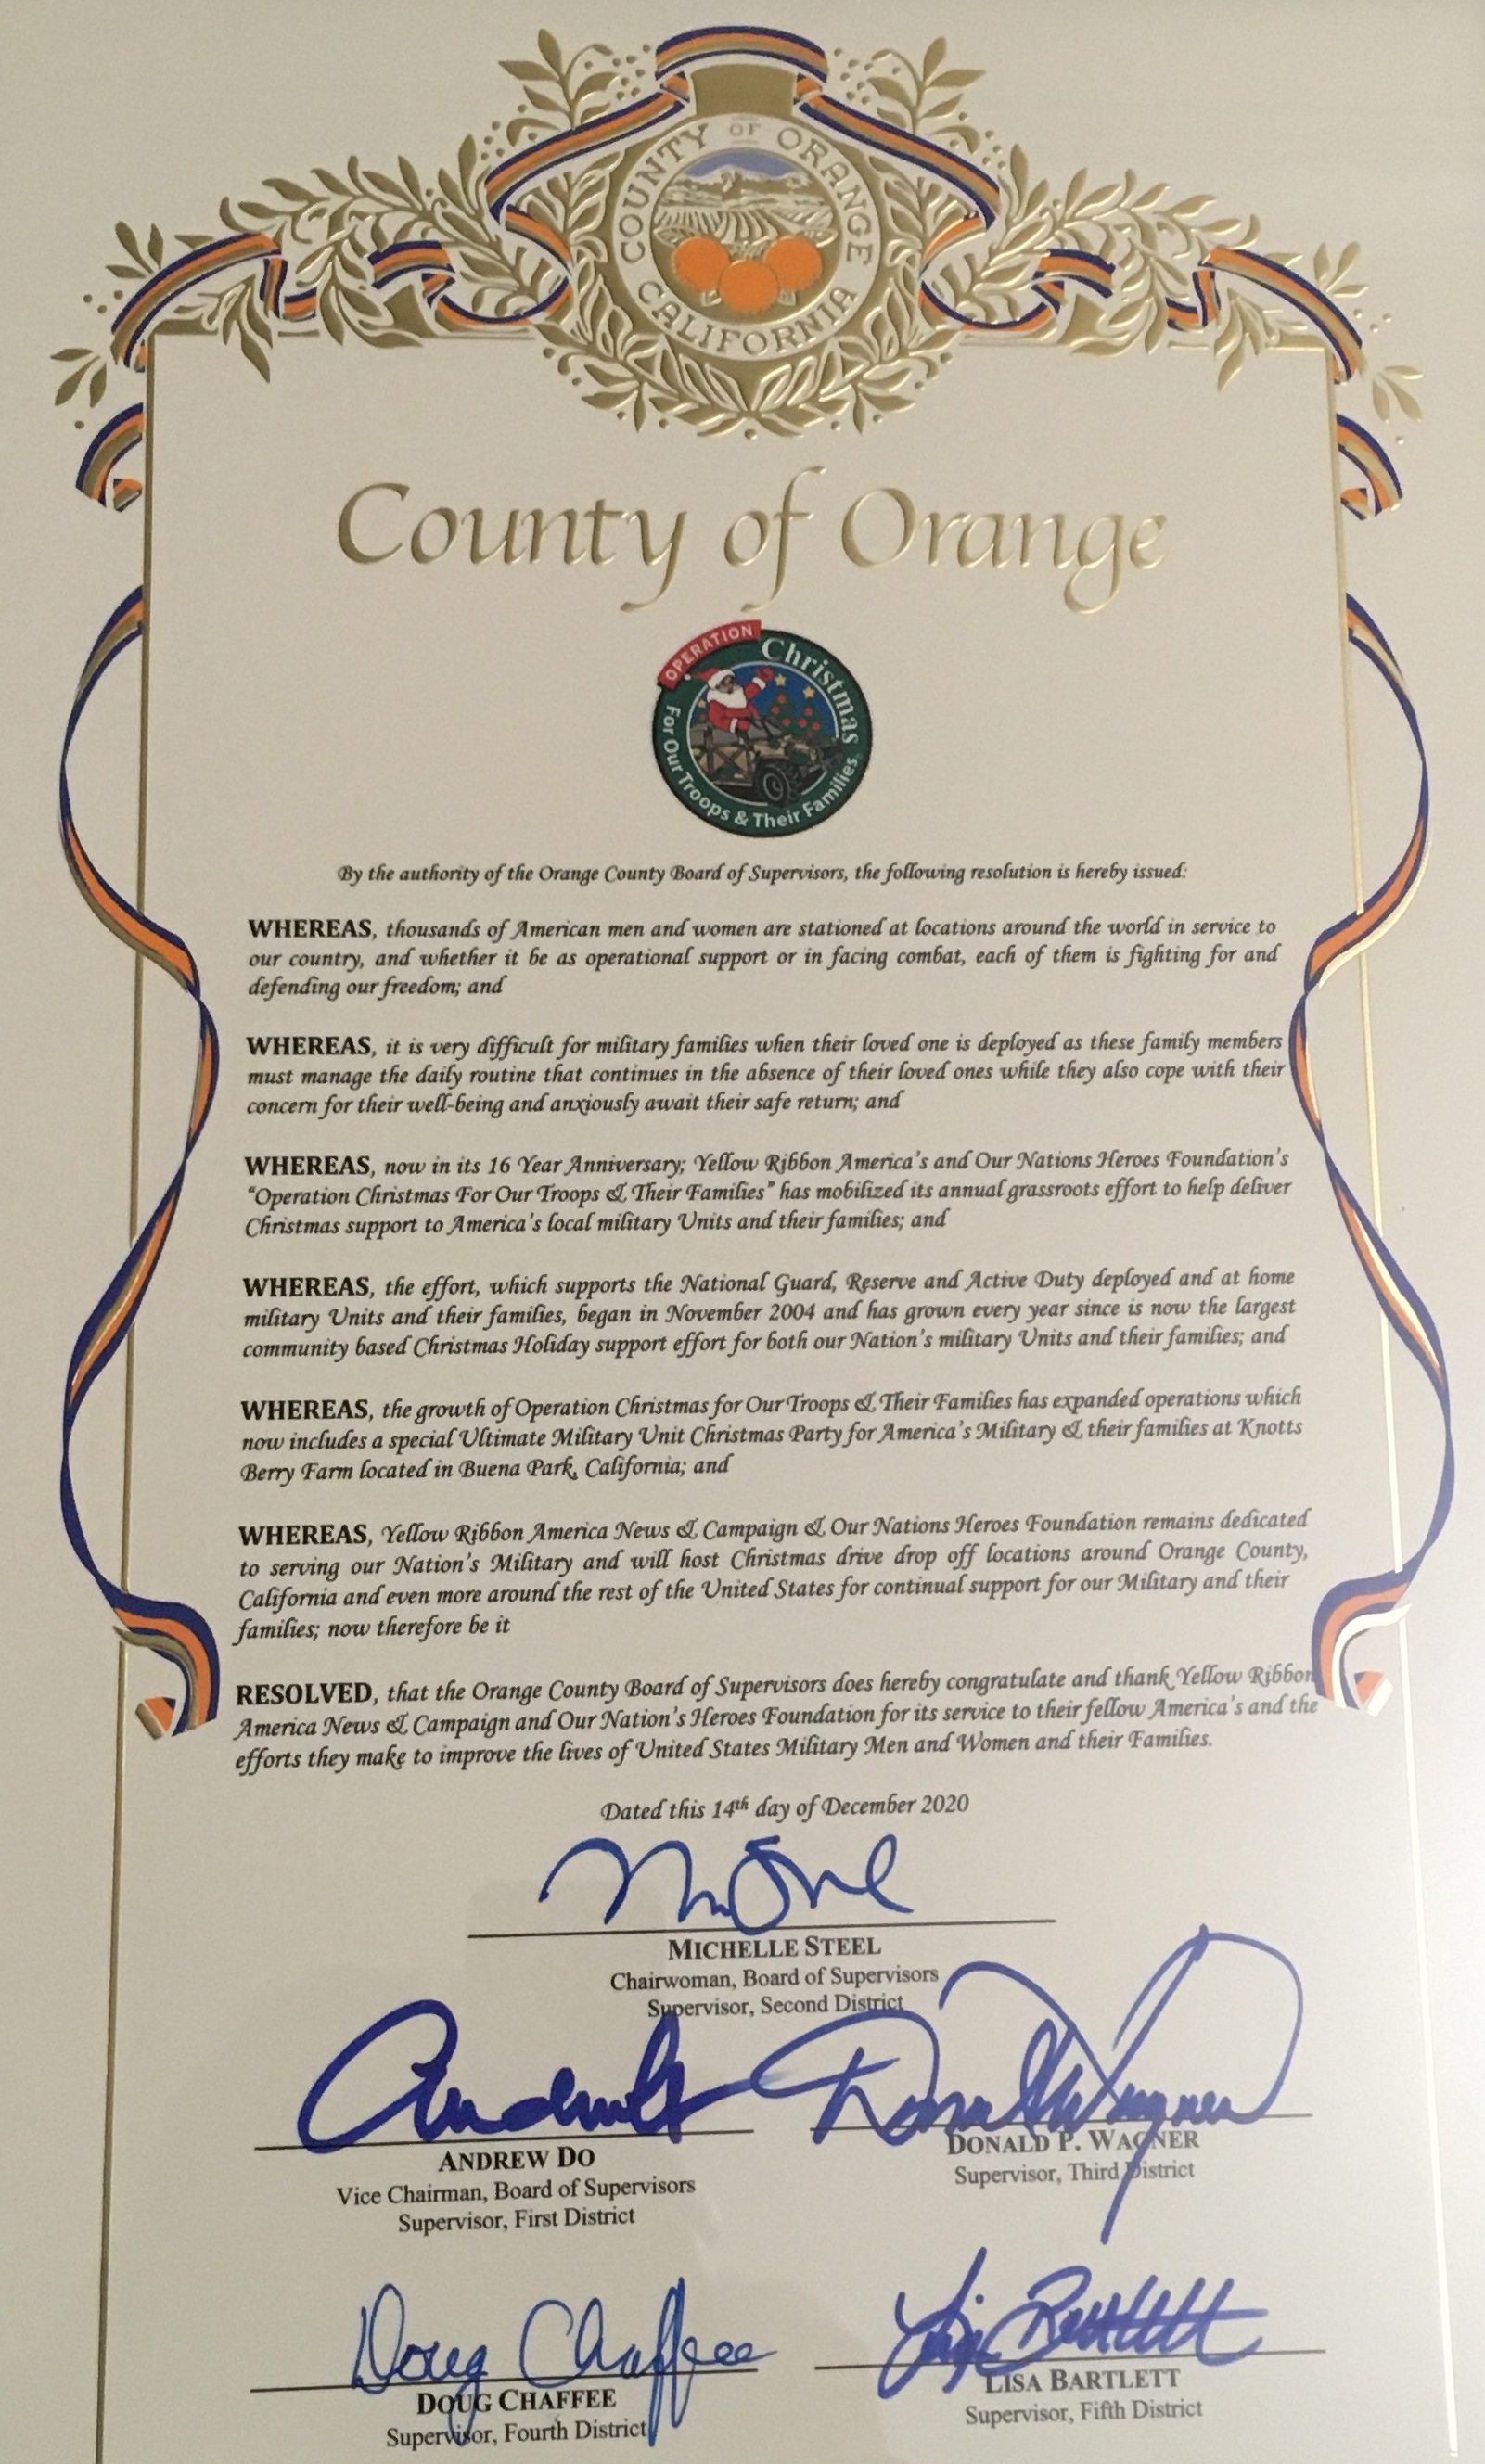 COUNTY OF ORANGE
CALIFORNIA
County of Orange
OPERATION
Christmas
For Our Troops & Their Families
By the authority of the Orange County Board of Supervisors, the following resolution is hereby issued:
WHEREAS, thousands of American men and women are stationed at locations around the world in service to
our country, and whether it be as operational support or in facing combat, each of them is fighting for and
defending our freedom; and
WHEREAS, it is very difficult for military families when their loved one is deployed as these family members
must manage the daily routine that continues in the absence of their loved ones while they also cope with their
concern for their well-being and anxiously await their safe return; and
WHEREAS, now in its 16 Year Anniversary; Yellow Ribbon America's and Our Nations Heroes Foundation's
"Operation Christmas For Our Troops & Their Families" has mobilized its annual grassroots effort to help deliver
Christmas support to America's local military Units and their families; and
WHEREAS, the effort, which supports the National Guard, Reserve and Active Duty deployed and at home
military Units and their families, began in November 2004 and has grown every year since is now the largest
community based Christmas Holiday support effort for both our Nation's military Units and their families; and
WHEREAS, the growth of Operation Christmas for Our Troops & Their Families has expanded operations which
now includes a special Ultimate Military Unit Christmas Party for America's Military & their families at Knotts
Berry Farm located in Buena Park, California; and
WHEREAS, Yellow Ribbon America News & Campaign & Our Nations Heroes Foundation remains dedicated
to serving our Nation's Military and will host Christmas drive drop off locations around Orange County,
California and even more around the rest of the United States for continual support for our Military and their
families; now therefore be it
RESOLVED, that the Orange County Board of Supervisors does hereby congratulate and thank Yellow Ribbon
America News & Campaign and Our Nation's Heroes Foundation for its service to their fellow America's and the
efforts they make to improve the lives of United States Military Men and Women and their Families.
Dated this 14th day of December 2020
MICHELLE STEEL
Chairwoman, Board of Supervisors
Supervisor, Second District
ANDREW DO
Vice Chairman, Board of Supervisors
Supervisor, First District
DONALD P. WAGNER
Supervisor, Third District
Doug Chaffee
DOUG CHAFFEE
Supervisor, Fourth District
Lisa Bartlett
LISA BARTLETT
Supervisor, Fifth District